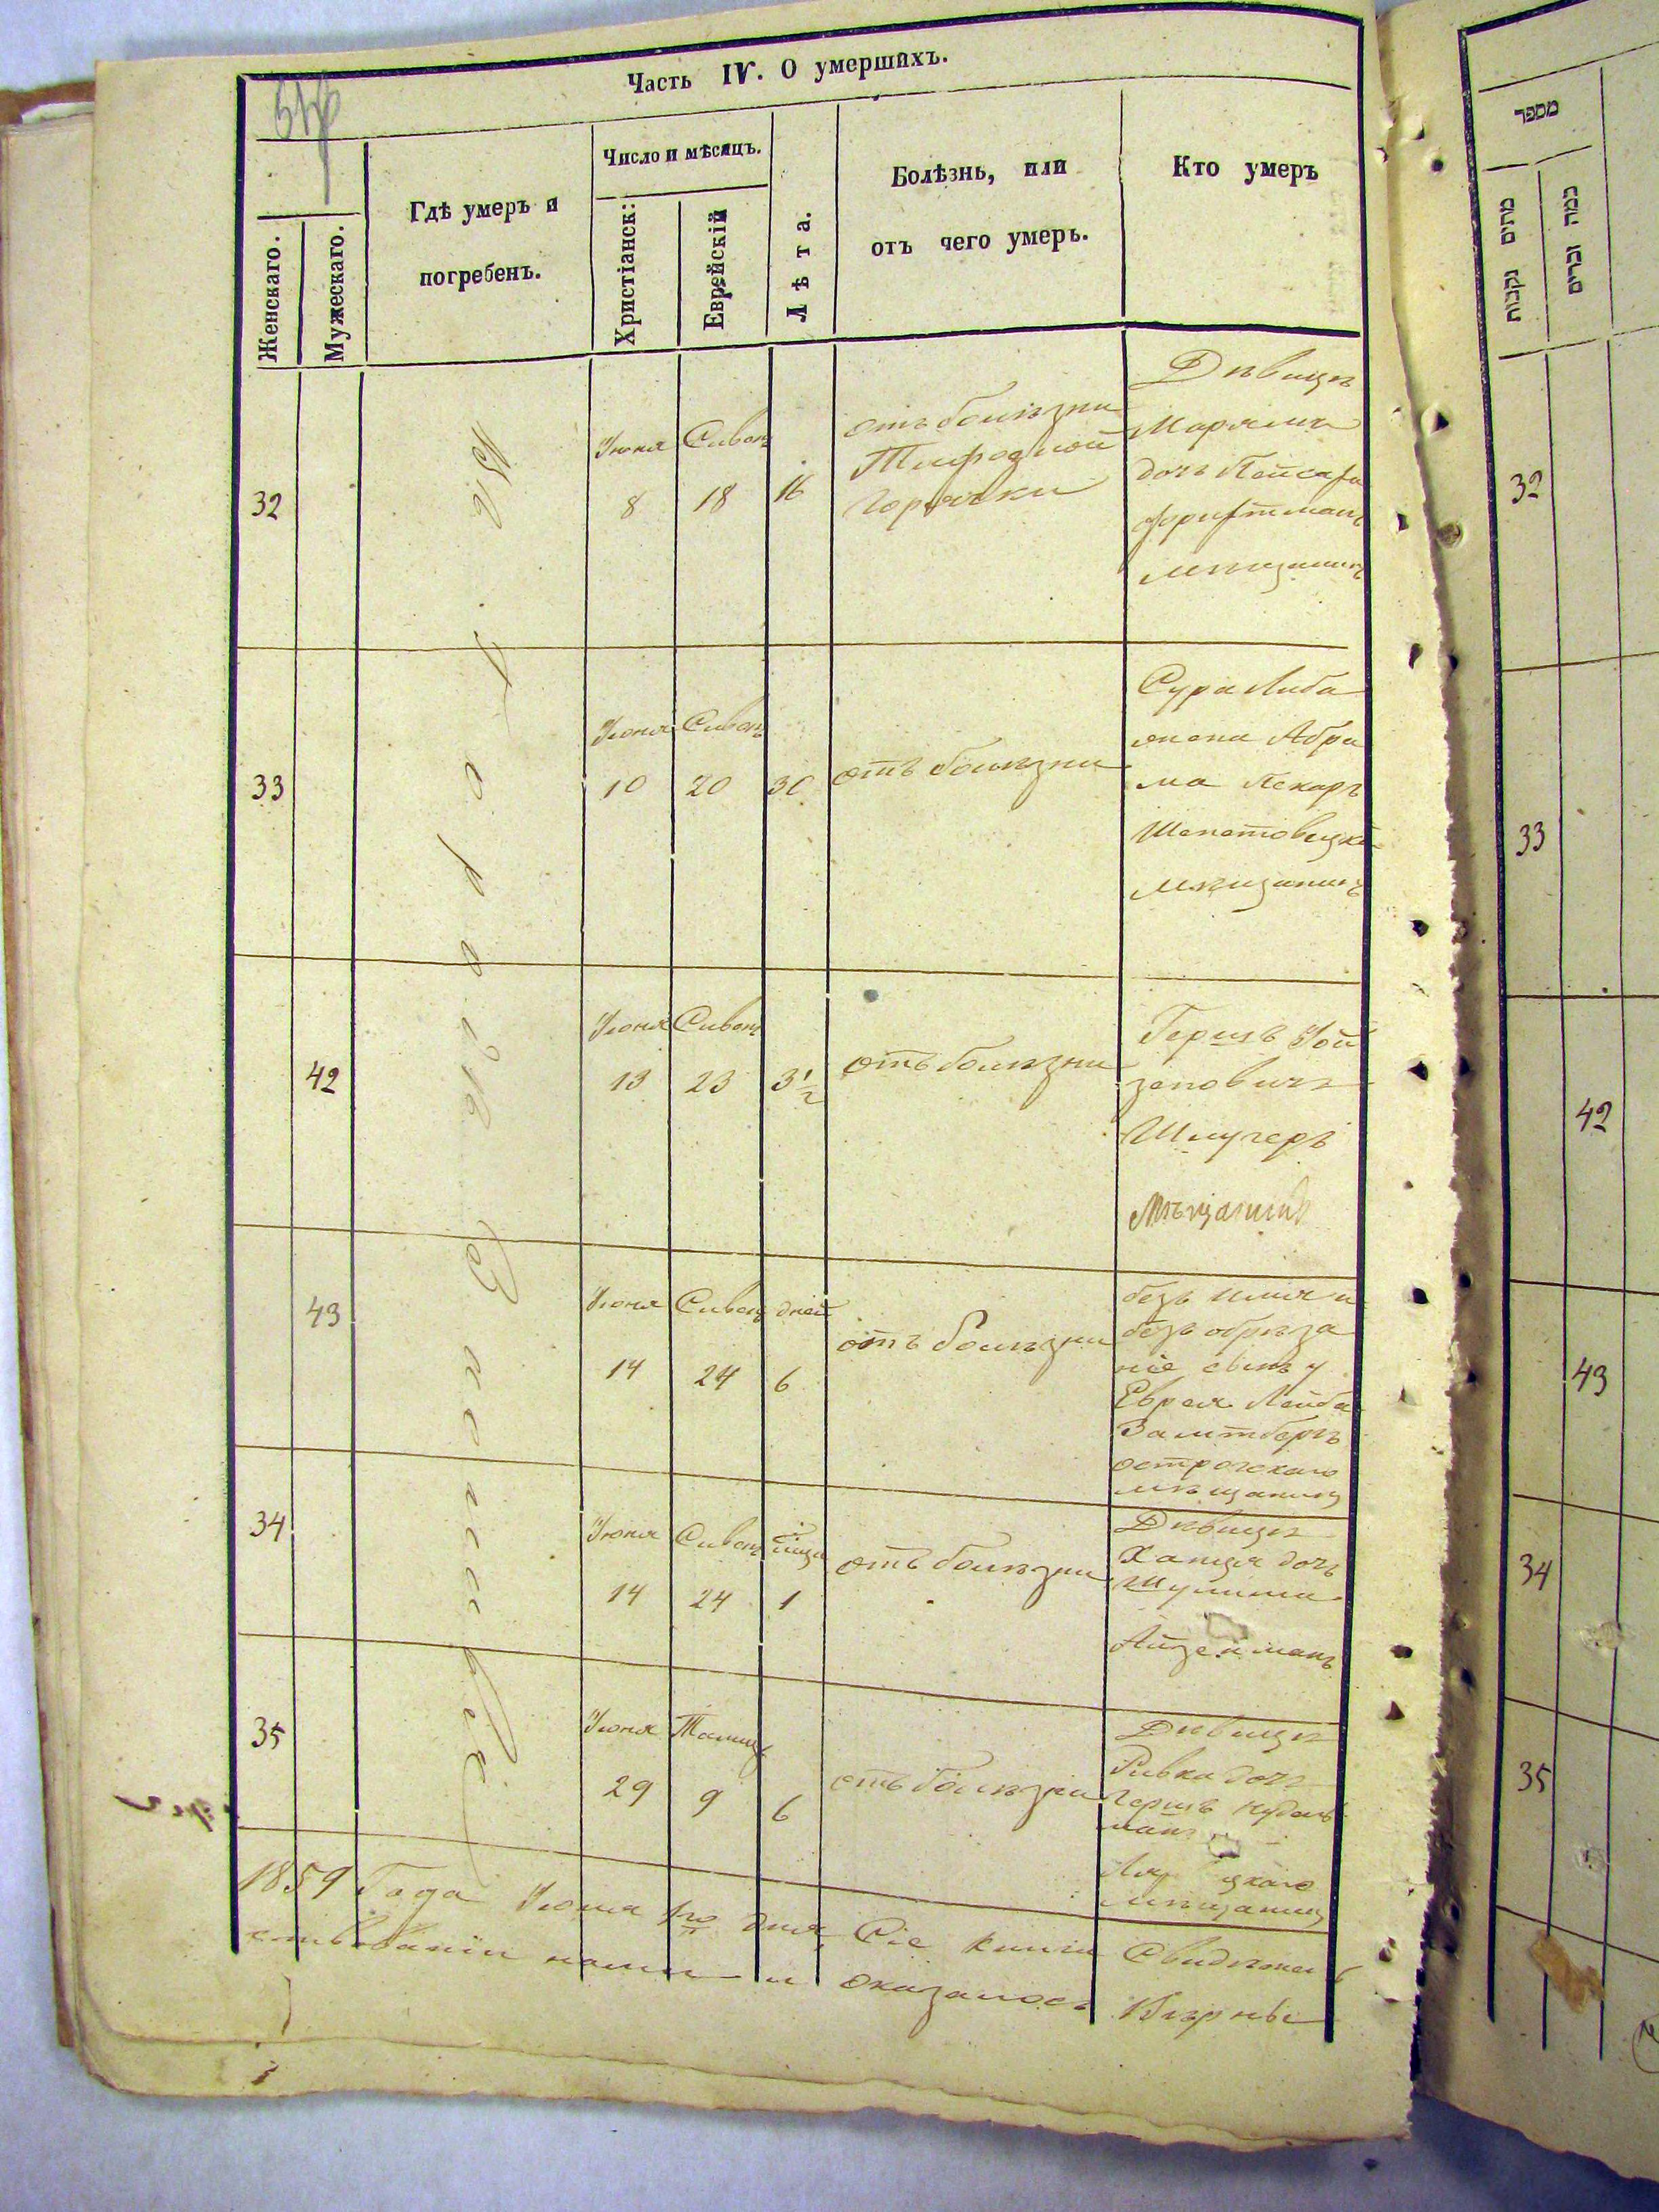 Часть IV. О умершихъ.
Женскаго.
Мужескаго.
Гдѣ умеръ и
погребенъ.
Число и мѣсяцъ.
Христіанск:
Еврейскій
Лѣта.
Болѣзнь, или
отъ чего умеръ.
Кто умеръ
32
Іюня
8
Сиванъ
18
16
отъ болѣзни
Тифодной
горячки
Дѣвица
Марямъ
дочь
мѣщанинъ
33
Іюня
10
Сиванъ
20
30
отъ болѣзни
Сура Либа
жена Абра
ма Пекаръ
Шепетовецка
мѣщанинъ
42
Іюня
13
Сиванъ
23
3 1/2
отъ болѣзни
Гершъ Іой
зеповичъ
Шлугеръ
Мѣщанинъ
43
Іюня
14
Сиванъ
24
дней
6
отъ болѣзни
безъ имя и
безъ обрѣза
ніе сынъ у
Еврея Лейба
Залтбергъ
острогскаго
мѣщанинъ
34
Іюня
14
Сиванъ
24
1
отъ болѣзни
Дѣвица
Ханця дочь
Шулима
Айзенманъ
35
Іюня
29
Тамуз
9
6
отъ болѣзни
Дѣвица
Ривка дочь
Гершъ Нудель
манъ
цкаго
мѣщанинъ
Въ Городѣ Заславлѣ
1859 Года Іюля дня, Сіе книги Свидѣтель
ствованіи нами и оказалось Вѣрны
מספר
מתים נקבות
כמה זכרים
32
33
42
43
34
35